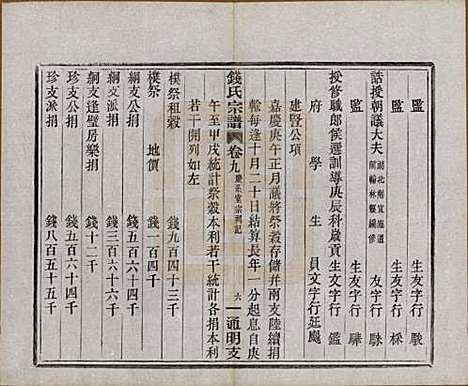 監　生友字行　騣
監　生友字行　
誥授朝議大夫　湖北
前翰林院編修　友字行　
監　生友字行　
授修職郎候選訓導庚辰科歲貢生文字行　鑑
府學生員文字行延颺
建賢公項
嘉慶庚午正月議將祭穀存儲并兩支陸續捐
輸每逢十月二十日結算長年　分起息自庚
午至甲戌統計祭穀本利若干統計各捐本利
若干開列如左
錢氏宗譜　卷九　慶系堂宗祠記　六　通明支
模祭租穀　錢九百四十三千
模祭　地價　錢一百四千
綱支公捐　錢五百六十四千
綱支派捐　錢三百六十六千
綱支逢璧房樂捐　錢十二千
珍支公捐　錢五百六十千
珍支派捐　錢八百五十五千